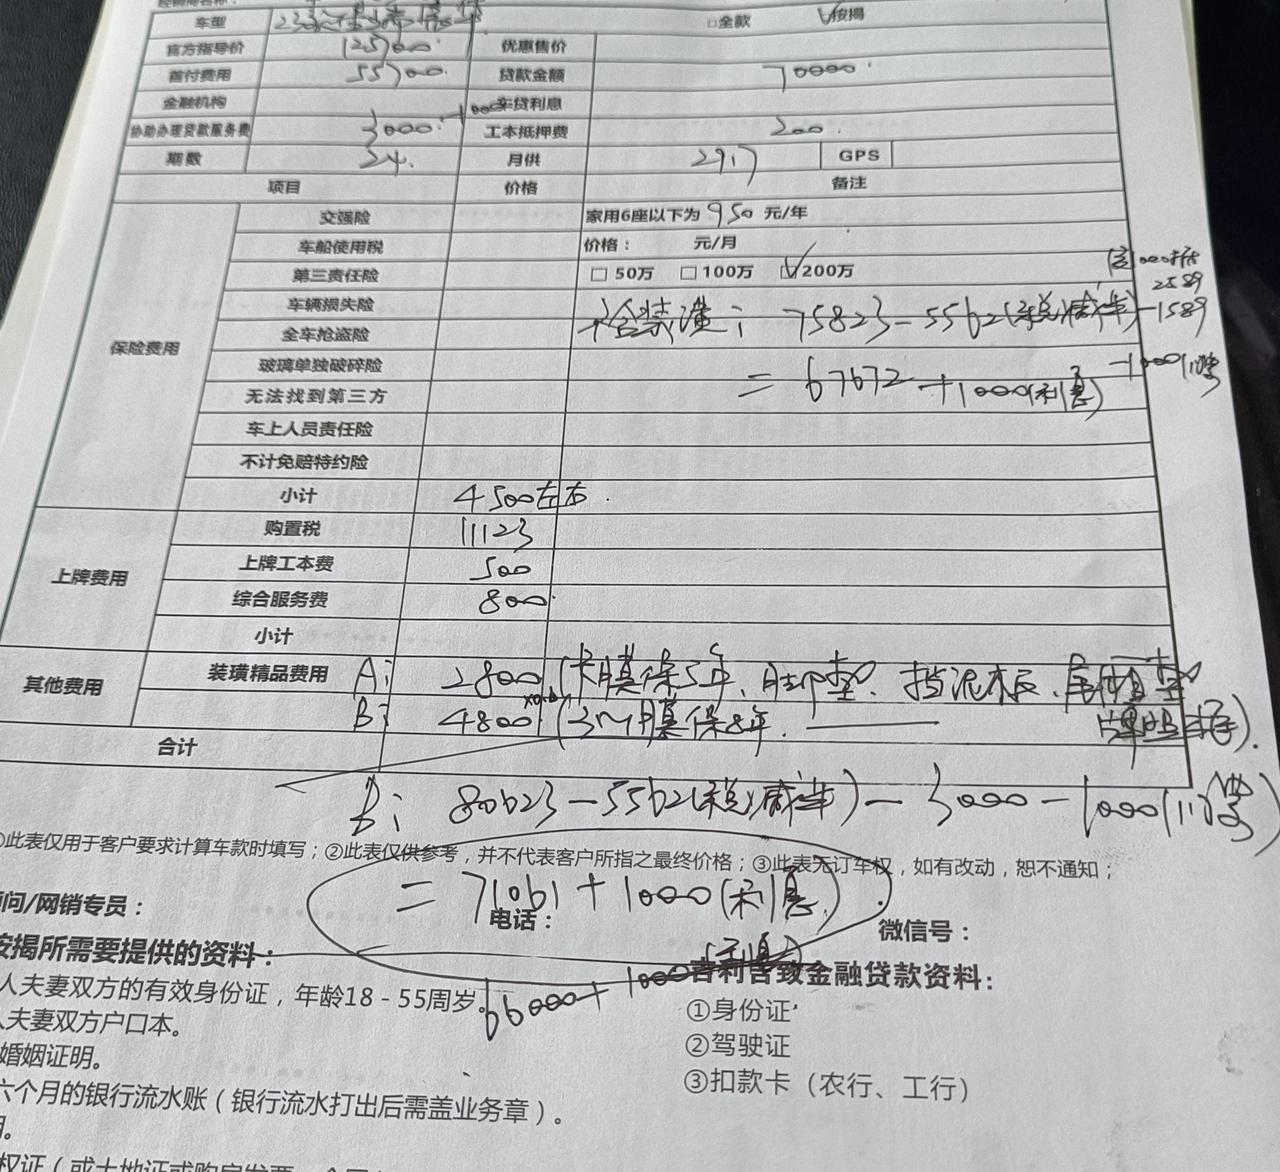 车型 □全款 ☑按揭
官方指导价 125700 优惠售价
首付费用 55700 贷款金额 70000
金融机构 车贷利息
协助办理贷款服务费 3000 -1000 工本抵押费 200
期数 24 月供 2917 GPS
项目 价格 备注
保险费用
交强险 家用6座以下为 950 元/年
车船使用税 价格： 元/月
第三责任险 □ 50万 □ 100万 ☑200万
2589
车辆损失险 含装潢： 75823-5562(税减半)-1589
全车抢盗险
玻璃单独破碎险 = 67672 +1000(利息) -1000(
无法找到第三方
车上人员责任险
不计免赔特约险
小计 4500左右
上牌费用
购置税 11123
上牌工本费 500
综合服务费 800
小计
其他费用
装璜精品费用 A: 2800 (卡膜保5年、脚垫、挡泥板、尾箱垫
B: 4800 (3M膜保8年. 牌照框).
合计
B: 80623-5562(税减半)-3000-1000(
①此表仅用于客户要求计算车款时填写；②此表仅供参考，并不代表客户所指之最终价格；③此表无订车权，如有改动，恕不通知；
= 71061+1000(利息)
问/网销专员： 电话： 微信号：
按揭所需要提供的资料：
66000+1000(利息)
吉利吉致金融贷款资料：
人夫妻双方的有效身份证，年龄18-55周岁。
①身份证
人夫妻双方户口本。
②驾驶证
婚姻证明。
③扣款卡（农行、工行）
六个月的银行流水账（银行流水打出后需盖业务章）。